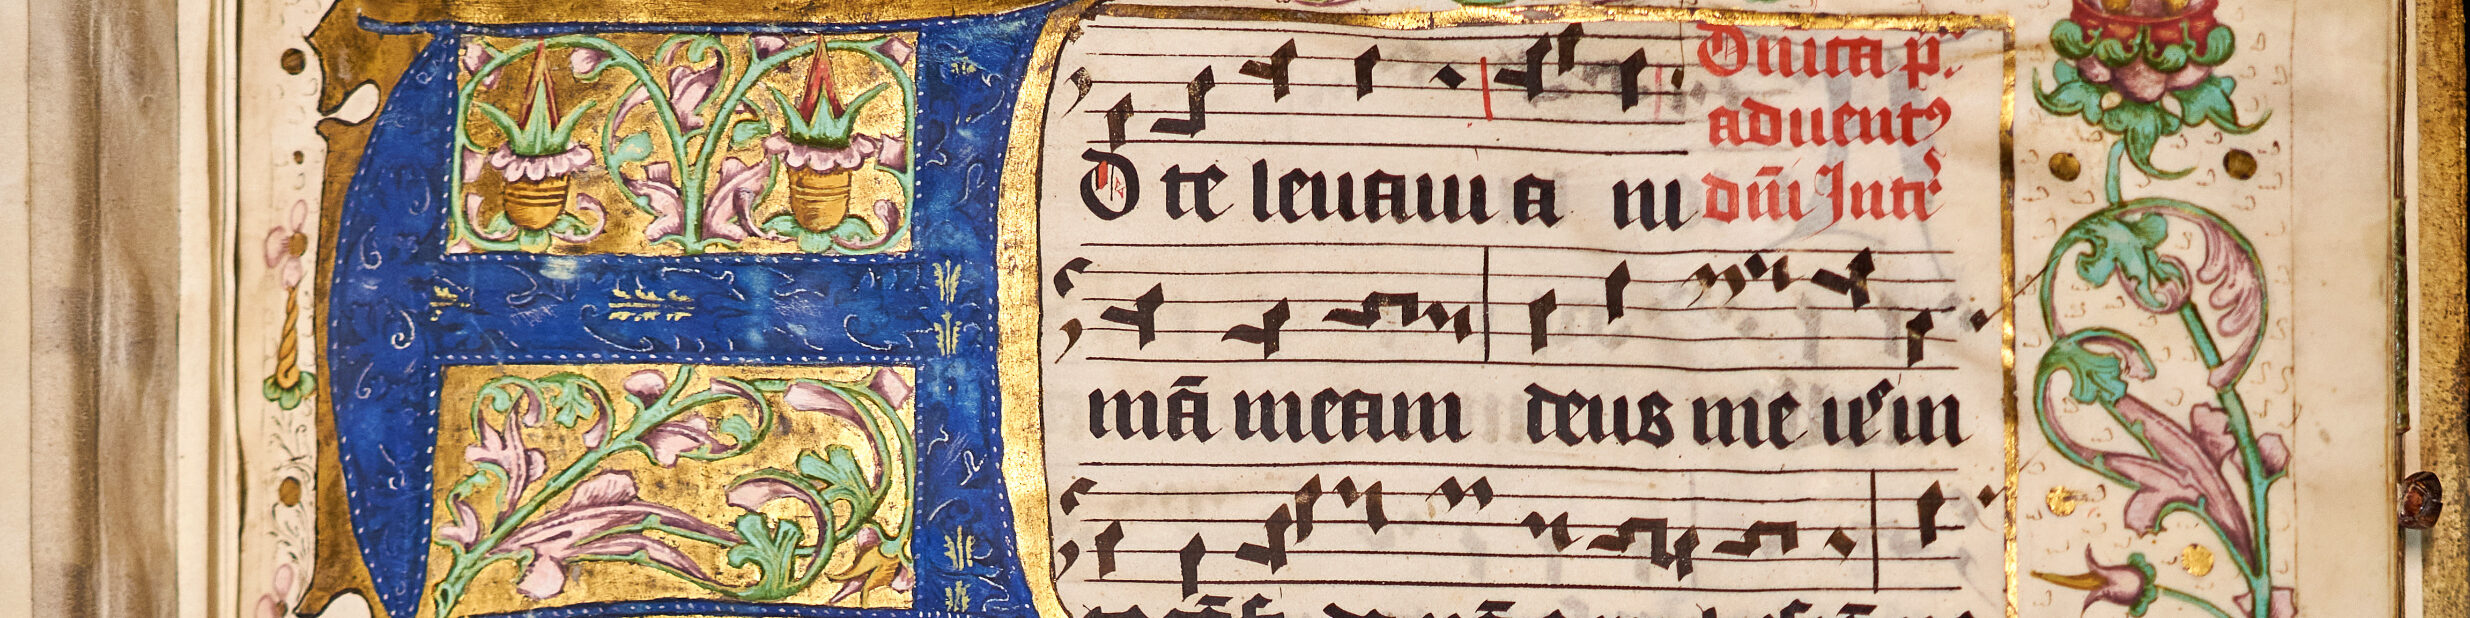 Dnica p.
aduent9
dni Intr
A D te leuaui a ni
mā meam deus me us in